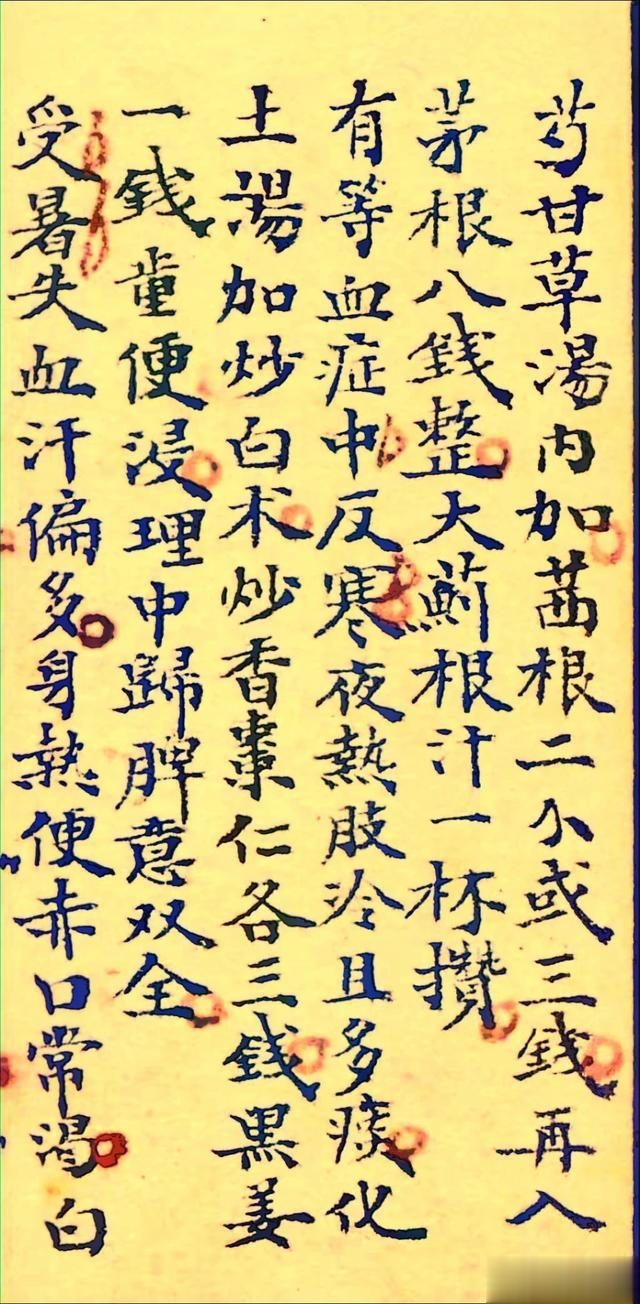 芍甘草湯内加茜根二小或三錢再入
茅根八錢整大薊根汁一杯攢
有等血症中反寒夜熱肢冷且多痰化
土湯加炒白术炒香棗仁各三錢黑姜
一錢童便浸理中歸脾意双全
受暑失血汗偏多身熱便赤口常渴白